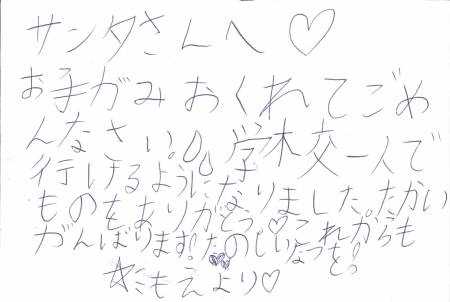 サンタさんへ♡
お手がみおくれてごめ
んなさい。学校一人で
行けるようになりました。たかい
ものをありがとう♡これからも
がんばります!たのしいなつを!
☆もえより♡